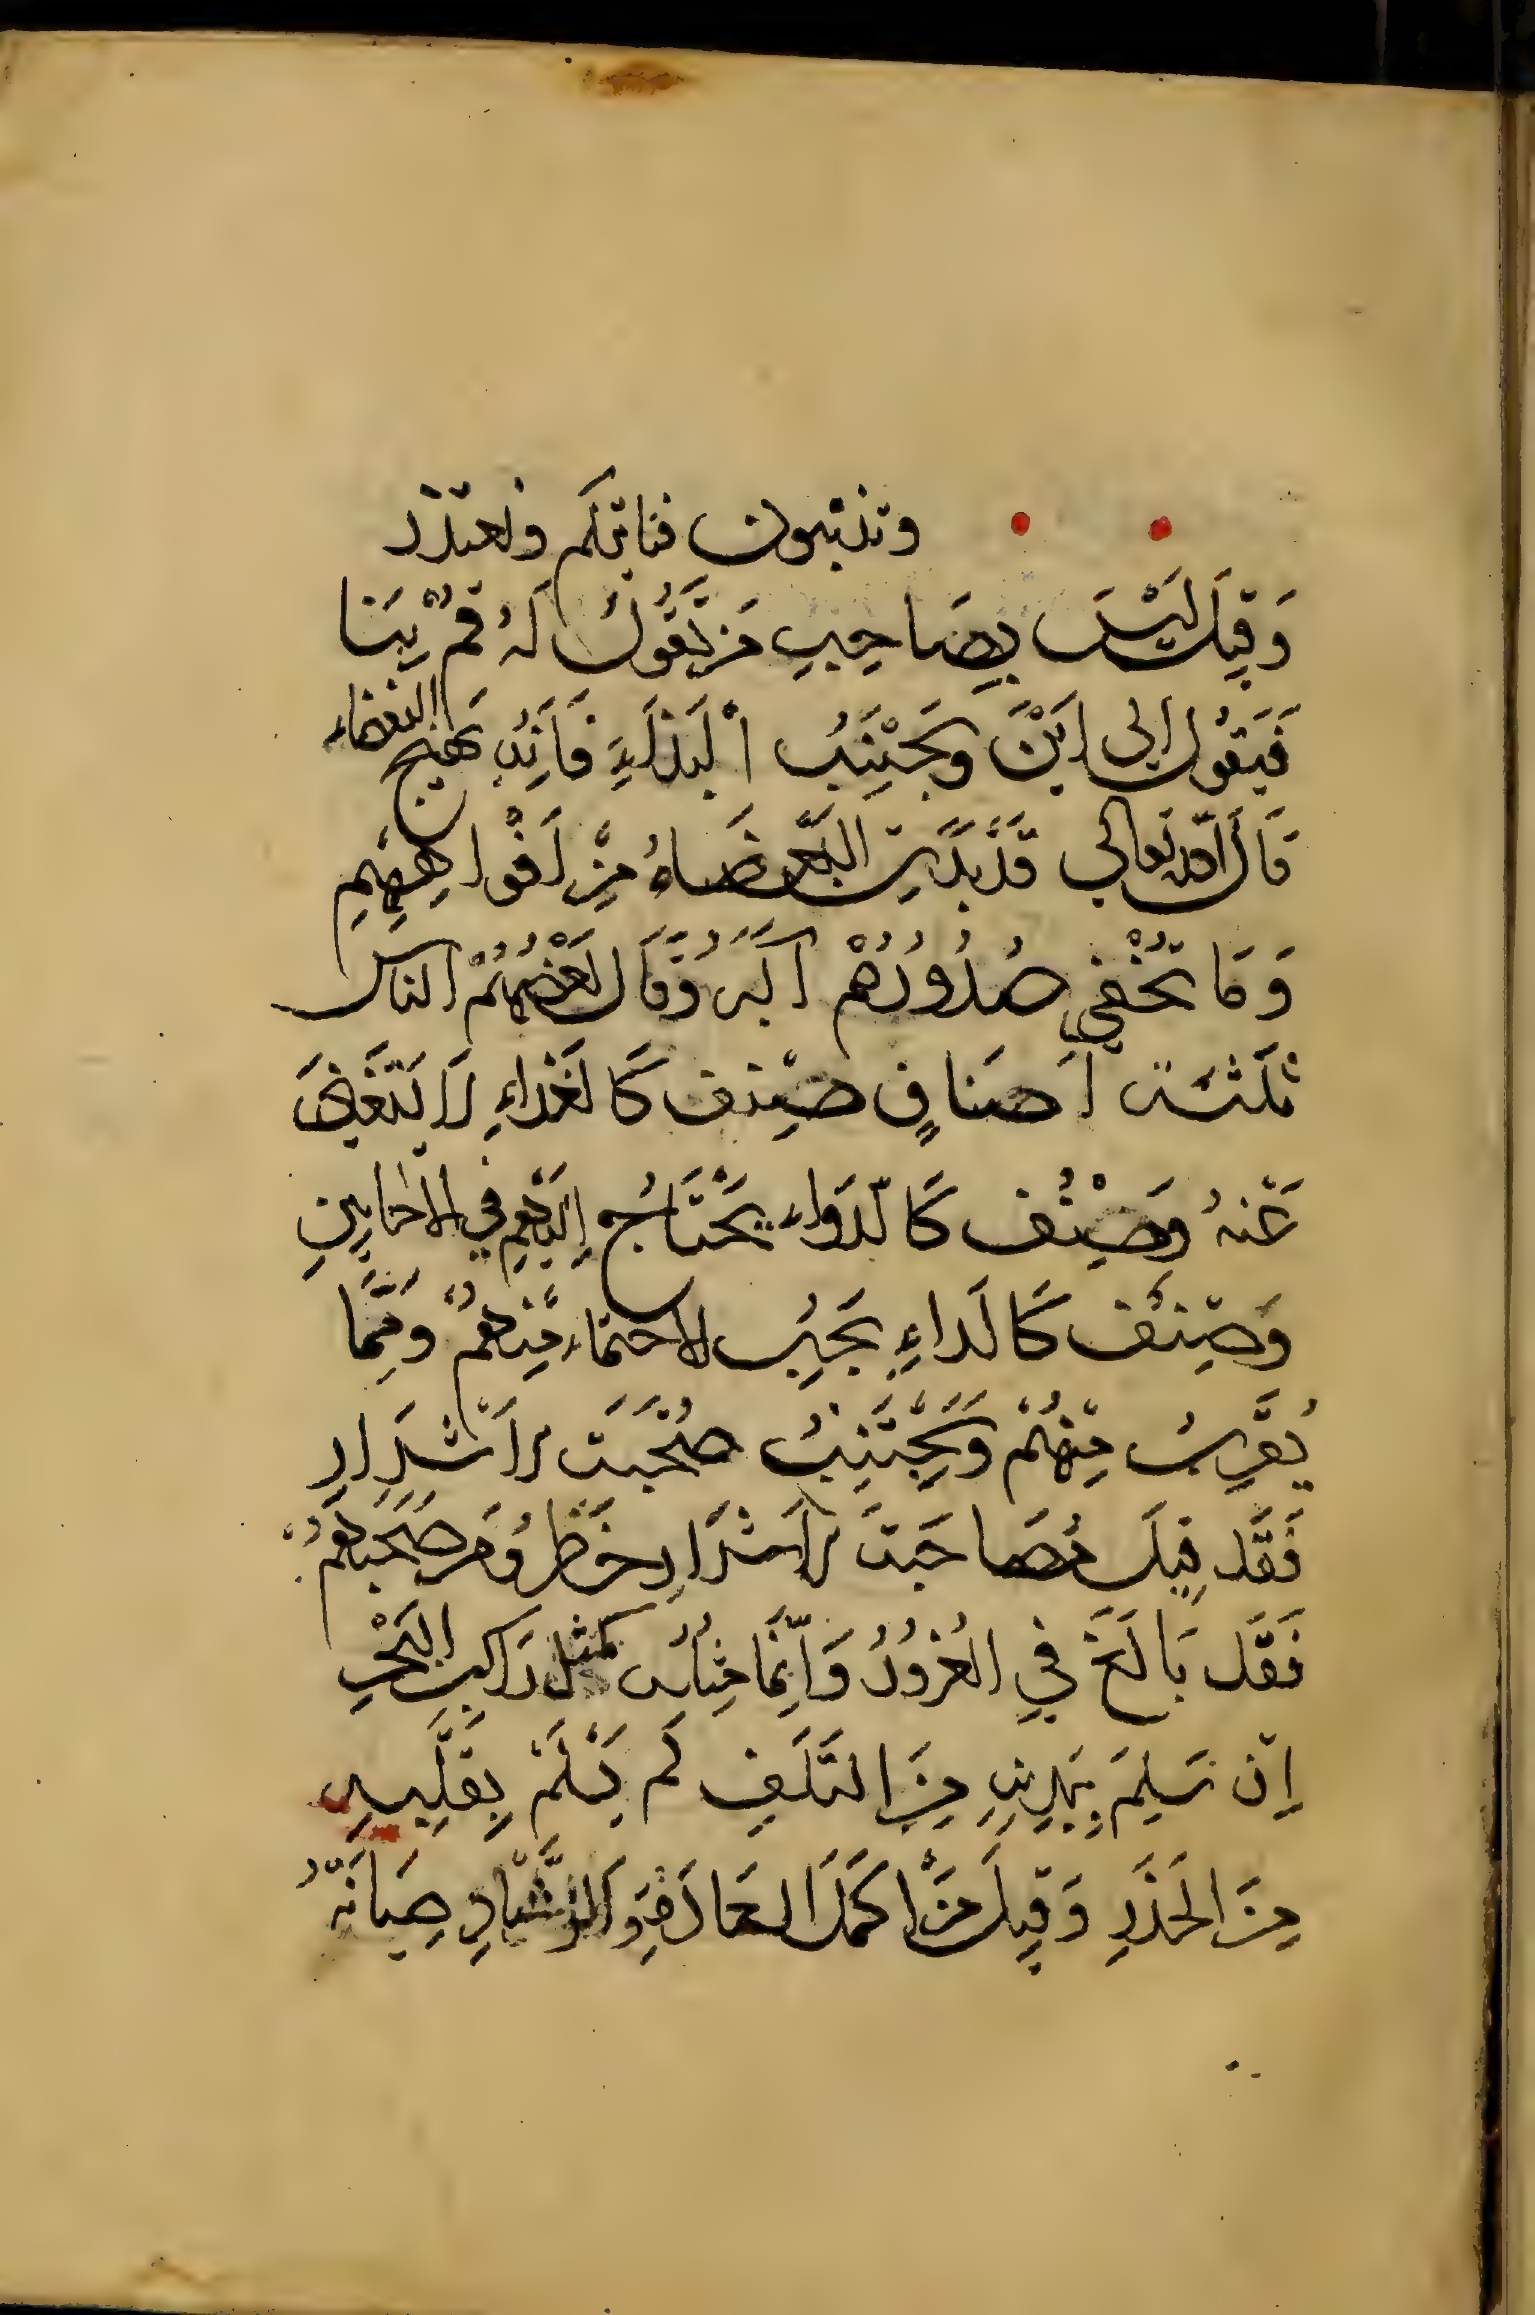 وتذنبون فناتكم ونعتذر
وَقِيلَ لَيْسَ بِصَاحِبٍ مَن تَقُولُ لَهُ قُمْ بِنَا
فَيَقُولُ الى ايْنَ وَيَجْتَنِبُ الْبَذَاءَ فَاَنِّهُ يَهيج البغضاء
قَالَ الله تَعالي قَدْ بَدَتِ البَغْضَاءُ مِنْ اَفْوَاهِهِمِ
وَمَا تُخْفِي صُدُورُهُمْ اَكْبَرُ وَقَالَ بَعْضُهُمْ الناس
ثَلَثَة اَصنافٍ صِنف كَالغَذاءِ لَا يَتَغَنىَ
عَنهُ وَصِنْف كَالدَواء يَحْتَاجُ اِلَيْهِمِ فِي الاحَايِينِ
وَصِنف كَالَداءِ يَجِبُ الاحتماء مِنهُمْ وَمِمَّا
يُقَرِبُ مِنْهُمْ وَيَجْتَنِبُ صُحْبَتَ الاَشْرَارِ
فَقَد قِيلَ مُصَاحَبَتَ الاَشْرَارِ خَطَرُ وَمَن صَحِبَهُمُ
فَقَد بَالَغَ فِي الغُرُورُ وَاِنَّمَا مِثاله كمثل رَاكِبِ البَحْرِ
اِن سَلِمَ بِبَدِنِهِ مِنَ التَلَفِ لَم يَسْلَمْ بِقَلْبِهِ
مِنَ الحَذَرِ وَقِيلَ مَنْ اكمَلَ العَادَ وَالرشَادِ صِيَانَةُ